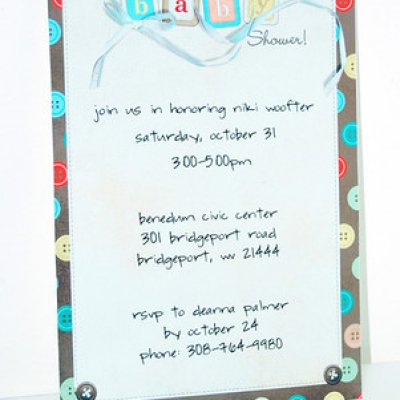 baby
Shower!
join us in honoring niki woofter
saturday, october 31
3:00-5:00pm
benedum civic center
301 bridgeport road
bridgeport, wv 21444
rsvp to deanna palmer
by october 24
phone: 308-764-9980